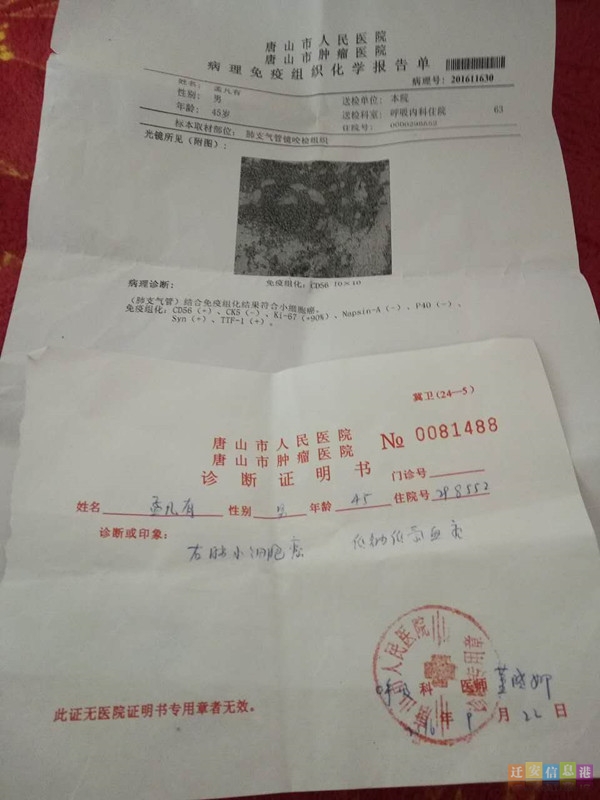 唐山市人民医院
唐山市肿瘤医院
病理免疫组织化学报告单
病理号: 201611630
姓名: 孟凡有
性别: 男
送检单位: 本院
年龄: 45岁
送检科室: 呼吸内科住院 63
标本取材部位: 肺支气管镜咬检组织
住院号:
光镜所见（附图）:
免疫组化: CD56 10×10
病理诊断:
（肺支气管）结合免疫组化结果符合小细胞癌。
免疫组化: CD56（+）、CK5（-）、Ki-67（+90%）、Napsin-A（-）、P40（-）、
Syn（+）、TTF-1（+）。
冀卫(24—5)
唐山市人民医院
唐山市肿瘤医院
№ 0081488
诊断证明书
门诊号
姓名 孟凡有 性别 男 年龄 45 住院号 298552
诊断或印象:
右肺小细胞癌 低钠低氯血症
呼吸科 医师
2016年9月22日
此证无医院证明书专用章者无效。
迁安信息港